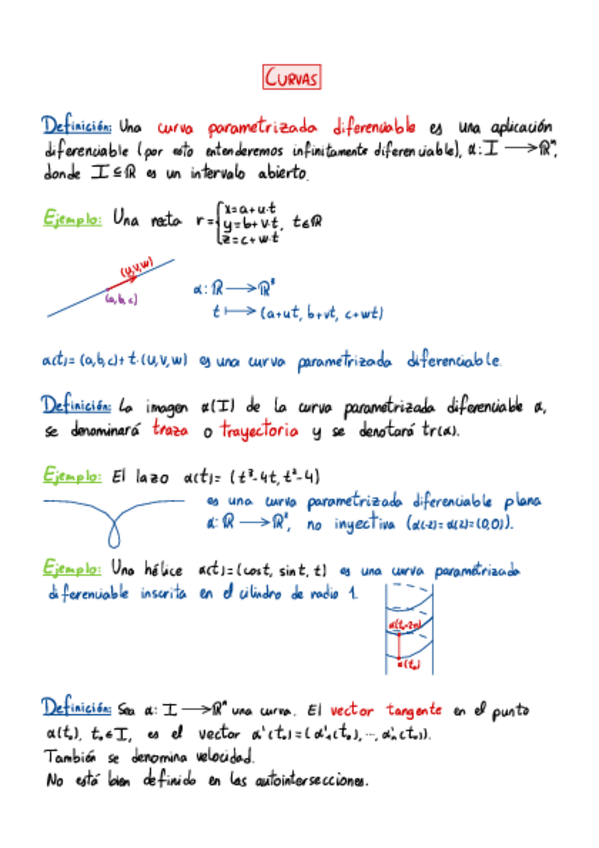 CURVAS
Definición: Una curva parametrizada diferenciable es una aplicación
diferenciable (por esto entenderemos infinitamente diferenciable), α: I → ℝⁿ,
donde I ⊆ ℝ es un intervalo abierto.
Ejemplo: Una recta r = { x=a+u·t
y=b+v·t, t∈ℝ
z=c+w·t
(u,v,w)
(a,b,c)
α: ℝ → ℝ³
t ↦ (a+ut, b+vt, c+wt)
α(t)= (a,b,c)+ t·(u,v,w) es una curva parametrizada diferenciable.
Definición: La imagen α(I) de la curva parametrizada diferenciable α,
se denominará traza o trayectoria y se denotará tr(α).
Ejemplo: El lazo α(t)= (t³-4t, t²-4)
es una curva parametrizada diferenciable plana
α: ℝ → ℝ², no inyectiva (α(-2)=α(2)=(0,0)).
Ejemplo: Una hélice α(t)=(cost, sint, t) es una curva parametrizada
diferenciable inscrita en el cilindro de radio 1.
α(t₀+2π)
α(t₀)
Definición: Sea α: I → ℝⁿ una curva. El vector tangente en el punto
α(t₀), t₀∈I, es el vector α'(t₀)=(α'₁(t₀), ..., α'ₙ(t₀)).
También se denomina velocidad.
No está bien definido en las autointersecciones.